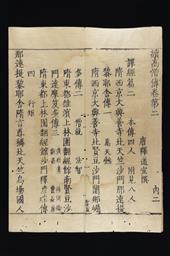 續高僧傳卷第二
唐釋道宣撰
譯經篇二　本傳四人　附見八人
隋西京大興善寺北天竺沙門那連
耶舍傳一　萬天懿
隋西京大興善寺北賢豆沙門闍那崛
多傳二　僧就　法智
隋東都雒濱上林園翻經館南賢豆沙
門達摩笈多傳三
隋東都上林園翻經館沙門釋彥琮傳
四　行矩
那連提黎耶舍隋言尊稱北天竺烏場國人